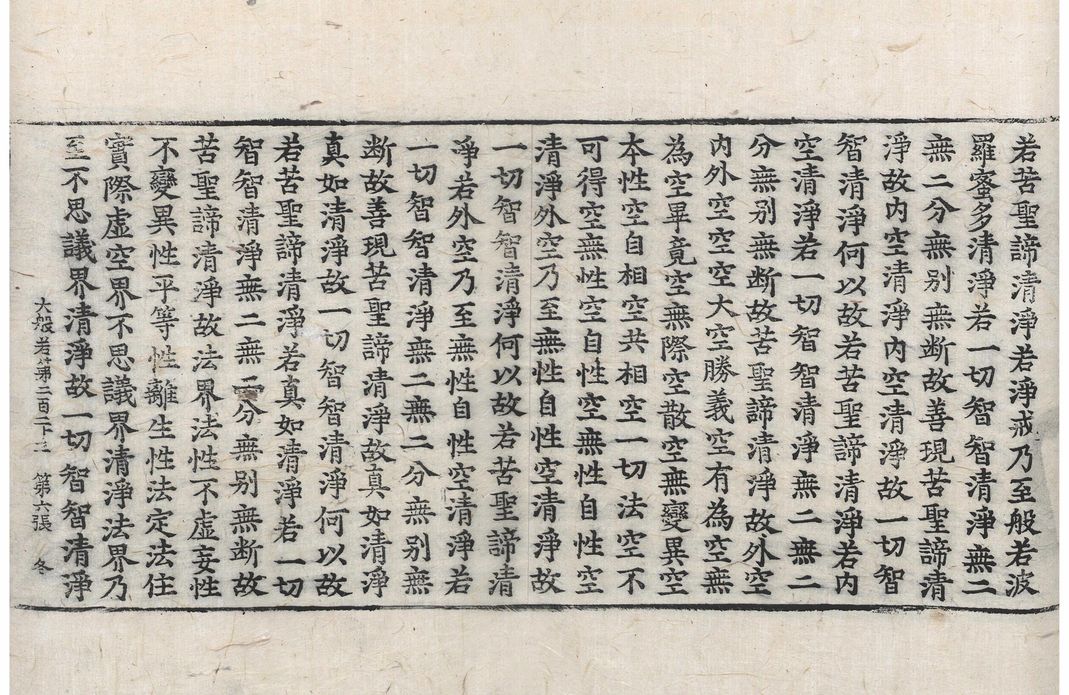 若苦聖諦清淨若淨戒乃至般若波
羅蜜多清淨若一切智智清淨無二
無二分無別無断故善現苦聖諦清
淨故內空清淨內空清淨故一切智
智清淨何以故若苦聖諦清淨若內
空清淨若一切智智清淨無二無二
分無别無断故苦聖諦清淨故外空
內外空空空大空勝義空有為空無
為空畢竟空無際空散空無變異空
本性空自相空共相空一切法空不
可得空無性空自性空無性自性空
清淨外空乃至無性自性空清淨故
一切智智清淨何以故若苦聖諦清
淨若外空乃至無性自性空清淨若
一切智智清淨無二無二分無别無
断故善現苦聖諦清淨故真如清淨
真如清淨故一切智智清淨何以故
若苦聖諦清淨若真如清淨若一切
智智清淨無二無二分無别無断故
苦聖諦清淨故法界法性不虛妄性
不變異性平等性離生性法定法住
實際虛空界不思議界清淨法界乃
至不思議界清淨故一切智智清淨
大般若第二百二十三 第六張 冬